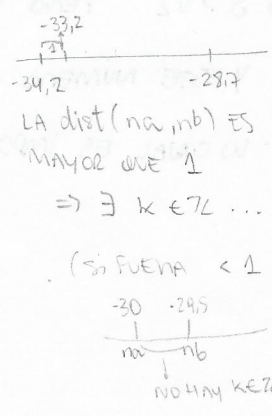 -33,2
1
-34,2 -28,7
LA dist(na,nb) ES
MAYOR QUE 1
⇒ ∃ k ∈ ℤ ...
(SI FUERA < 1
-30 -29,5
na nb
NO HAY k ∈ ℤ